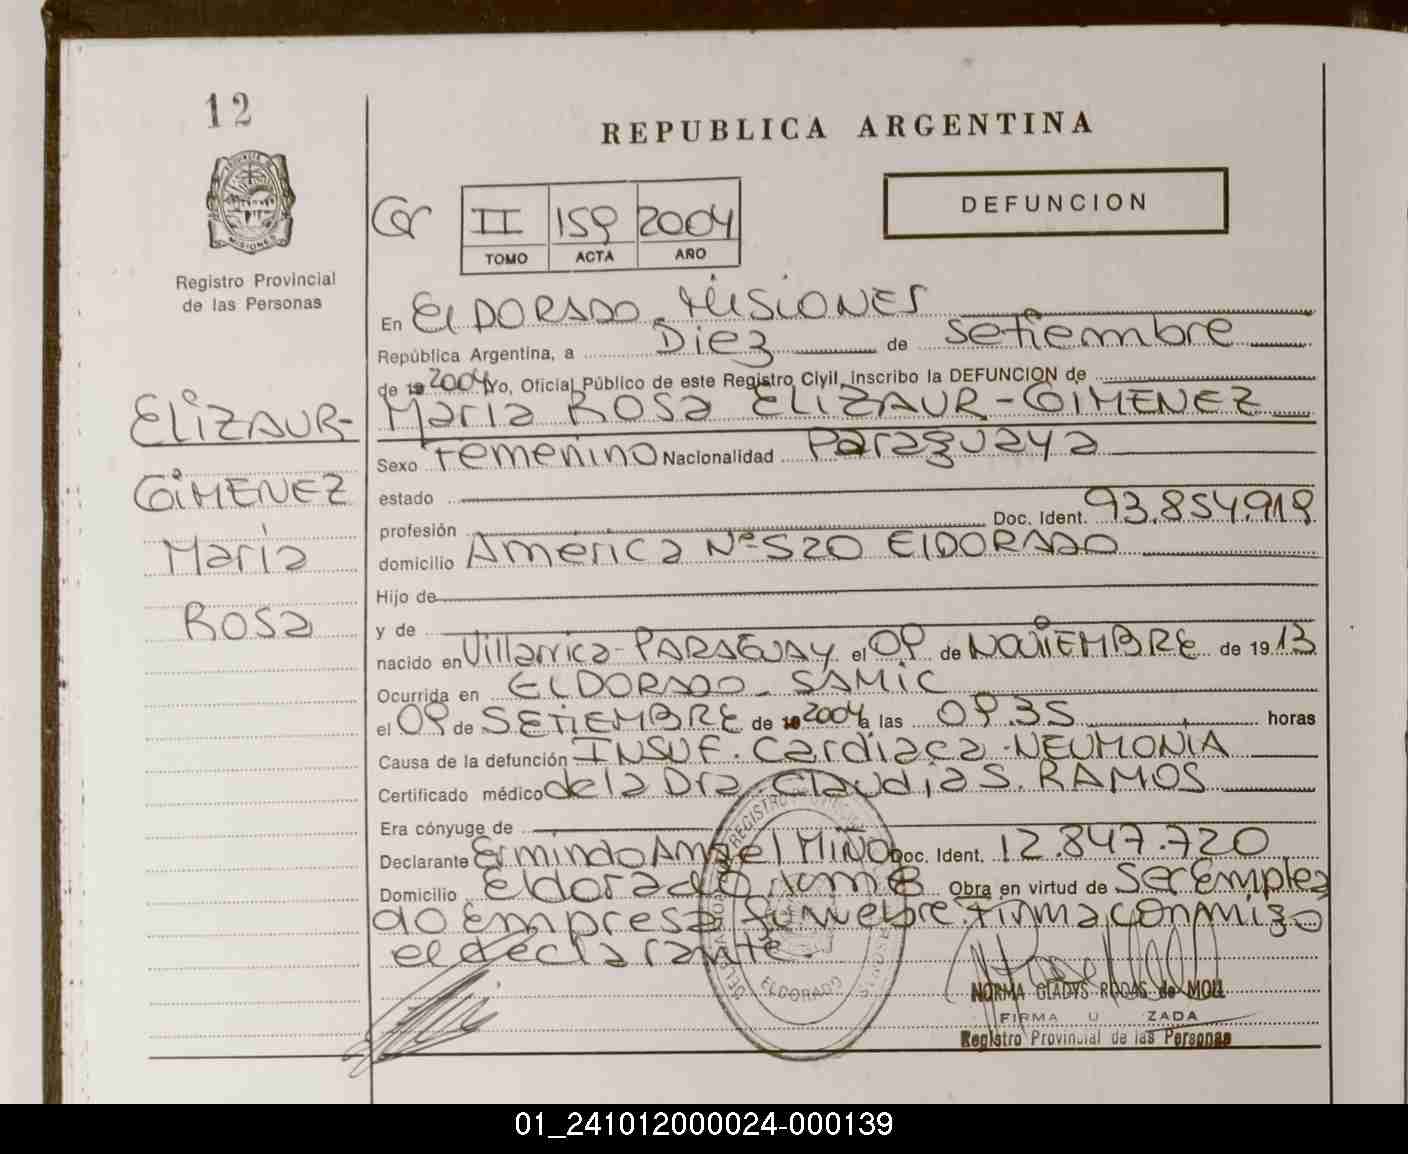 12
REPUBLICA ARGENTINA
DEFUNCION
II 159 2004
TOMO ACTA AÑO
MISIONES
Registro Provincial
de las Personas
En ElDORADO. MISIONES
República Argentina, a Diez de setiembre
de 19 2004 Yo, Oficial Público de este Registro Civil, Inscribo la DEFUNCION de
ELIZAUR-
GIMENEZ
María
Rosa
María Rosa ELIZAUR-GIMENEZ
Sexo Femenino Nacionalidad Paraguaya
estado
profesión Doc. Ident. 93.854.919
domicilio América Nº 520 ElDORADO
Hijo de
y de
nacido en Villarrica-PARAGUAY el 09 de NOVIEMBRE de 19 13
Ocurrida en ELDORADO-SAMIC
el 09 de SETIEMBRE de 19 2004 a las 09.35 horas
Causa de la defunción INSUF. Cardiaca-NEUMONIA
Certificado médico de la Dra. Claudia S. RAMOS
Era cónyuge de
Declarante Ermindo Angel MIÑO Doc. Ident. 12.847.720
Domicilio Eldorado Obra en virtud de ser emplea
do Empresa Funuebre. Firma conmigo
el declarante.
ELDORADO
NORMA GLADYS RODAS de MOLL
FIRMA U ZADA
Registro Provincial de las Personas
01_241012000024-000139